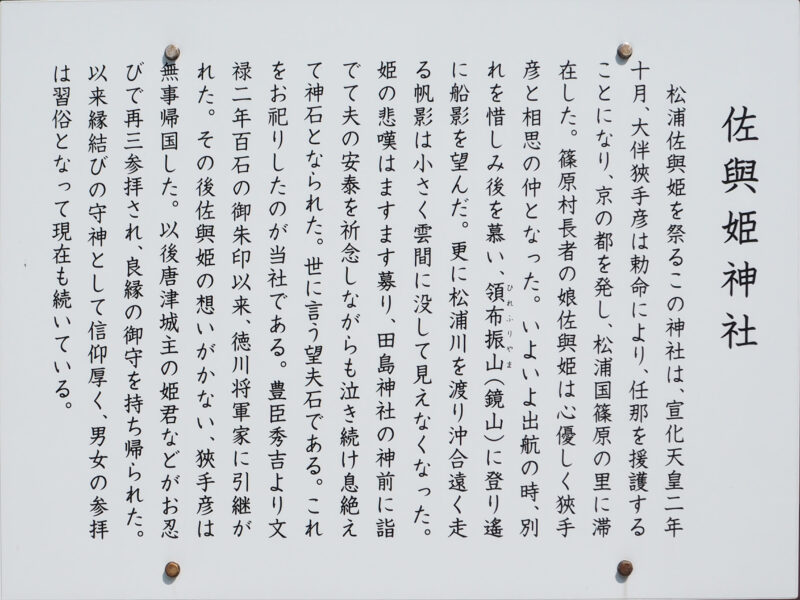 佐與姫神社
松浦佐與姫を祭るこの神社は、宣化天皇二年
十月、大伴狹手彦は勅命により、任那を援護する
ことになり、京の都を発し、松浦国篠原の里に滞
在した。篠原村長者の娘佐與姫は心優しく狹手
彦と相思の仲となった。いよいよ出航の時、別
れを惜しみ後を慕い、領布振山(鏡山)に登り遙
ひれふりやま
に船影を望んだ。更に松浦川を渡り沖合遠く走
る帆影は小さく雲間に没して見えなくなった。
姫の悲嘆はますます募り、田島神社の神前に詣
でて夫の安泰を祈念しながらも泣き続け息絶え
て神石となられた。世に言う望夫石である。これ
をお祀りしたのが当社である。豊臣秀吉より文
禄二年百石の御朱印以来、徳川将軍家に引継が
れた。その後佐與姫の想いがかない、狹手彦は
無事帰国した。以後唐津城主の姫君などがお忍
びで再三参拝され、良縁の御守を持ち帰られた。
以来縁結びの守神として信仰厚く、男女の参拝
は習俗となって現在も続いている。